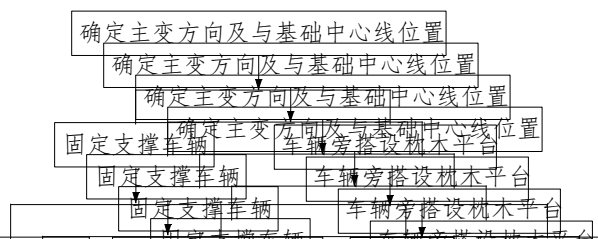 确定主变方向及与基础中心线位置
确定主变方向及与基础中心线位置
确定主变方向及与基础中心线位置
确定主变方向及与基础中心线位置
固定支撑车辆
车辆旁搭设枕木平台
固定支撑车辆
车辆旁搭设枕木平台
固定支撑车辆
车辆旁搭设枕木平台
固定支撑车辆
车辆旁搭设枕木平台